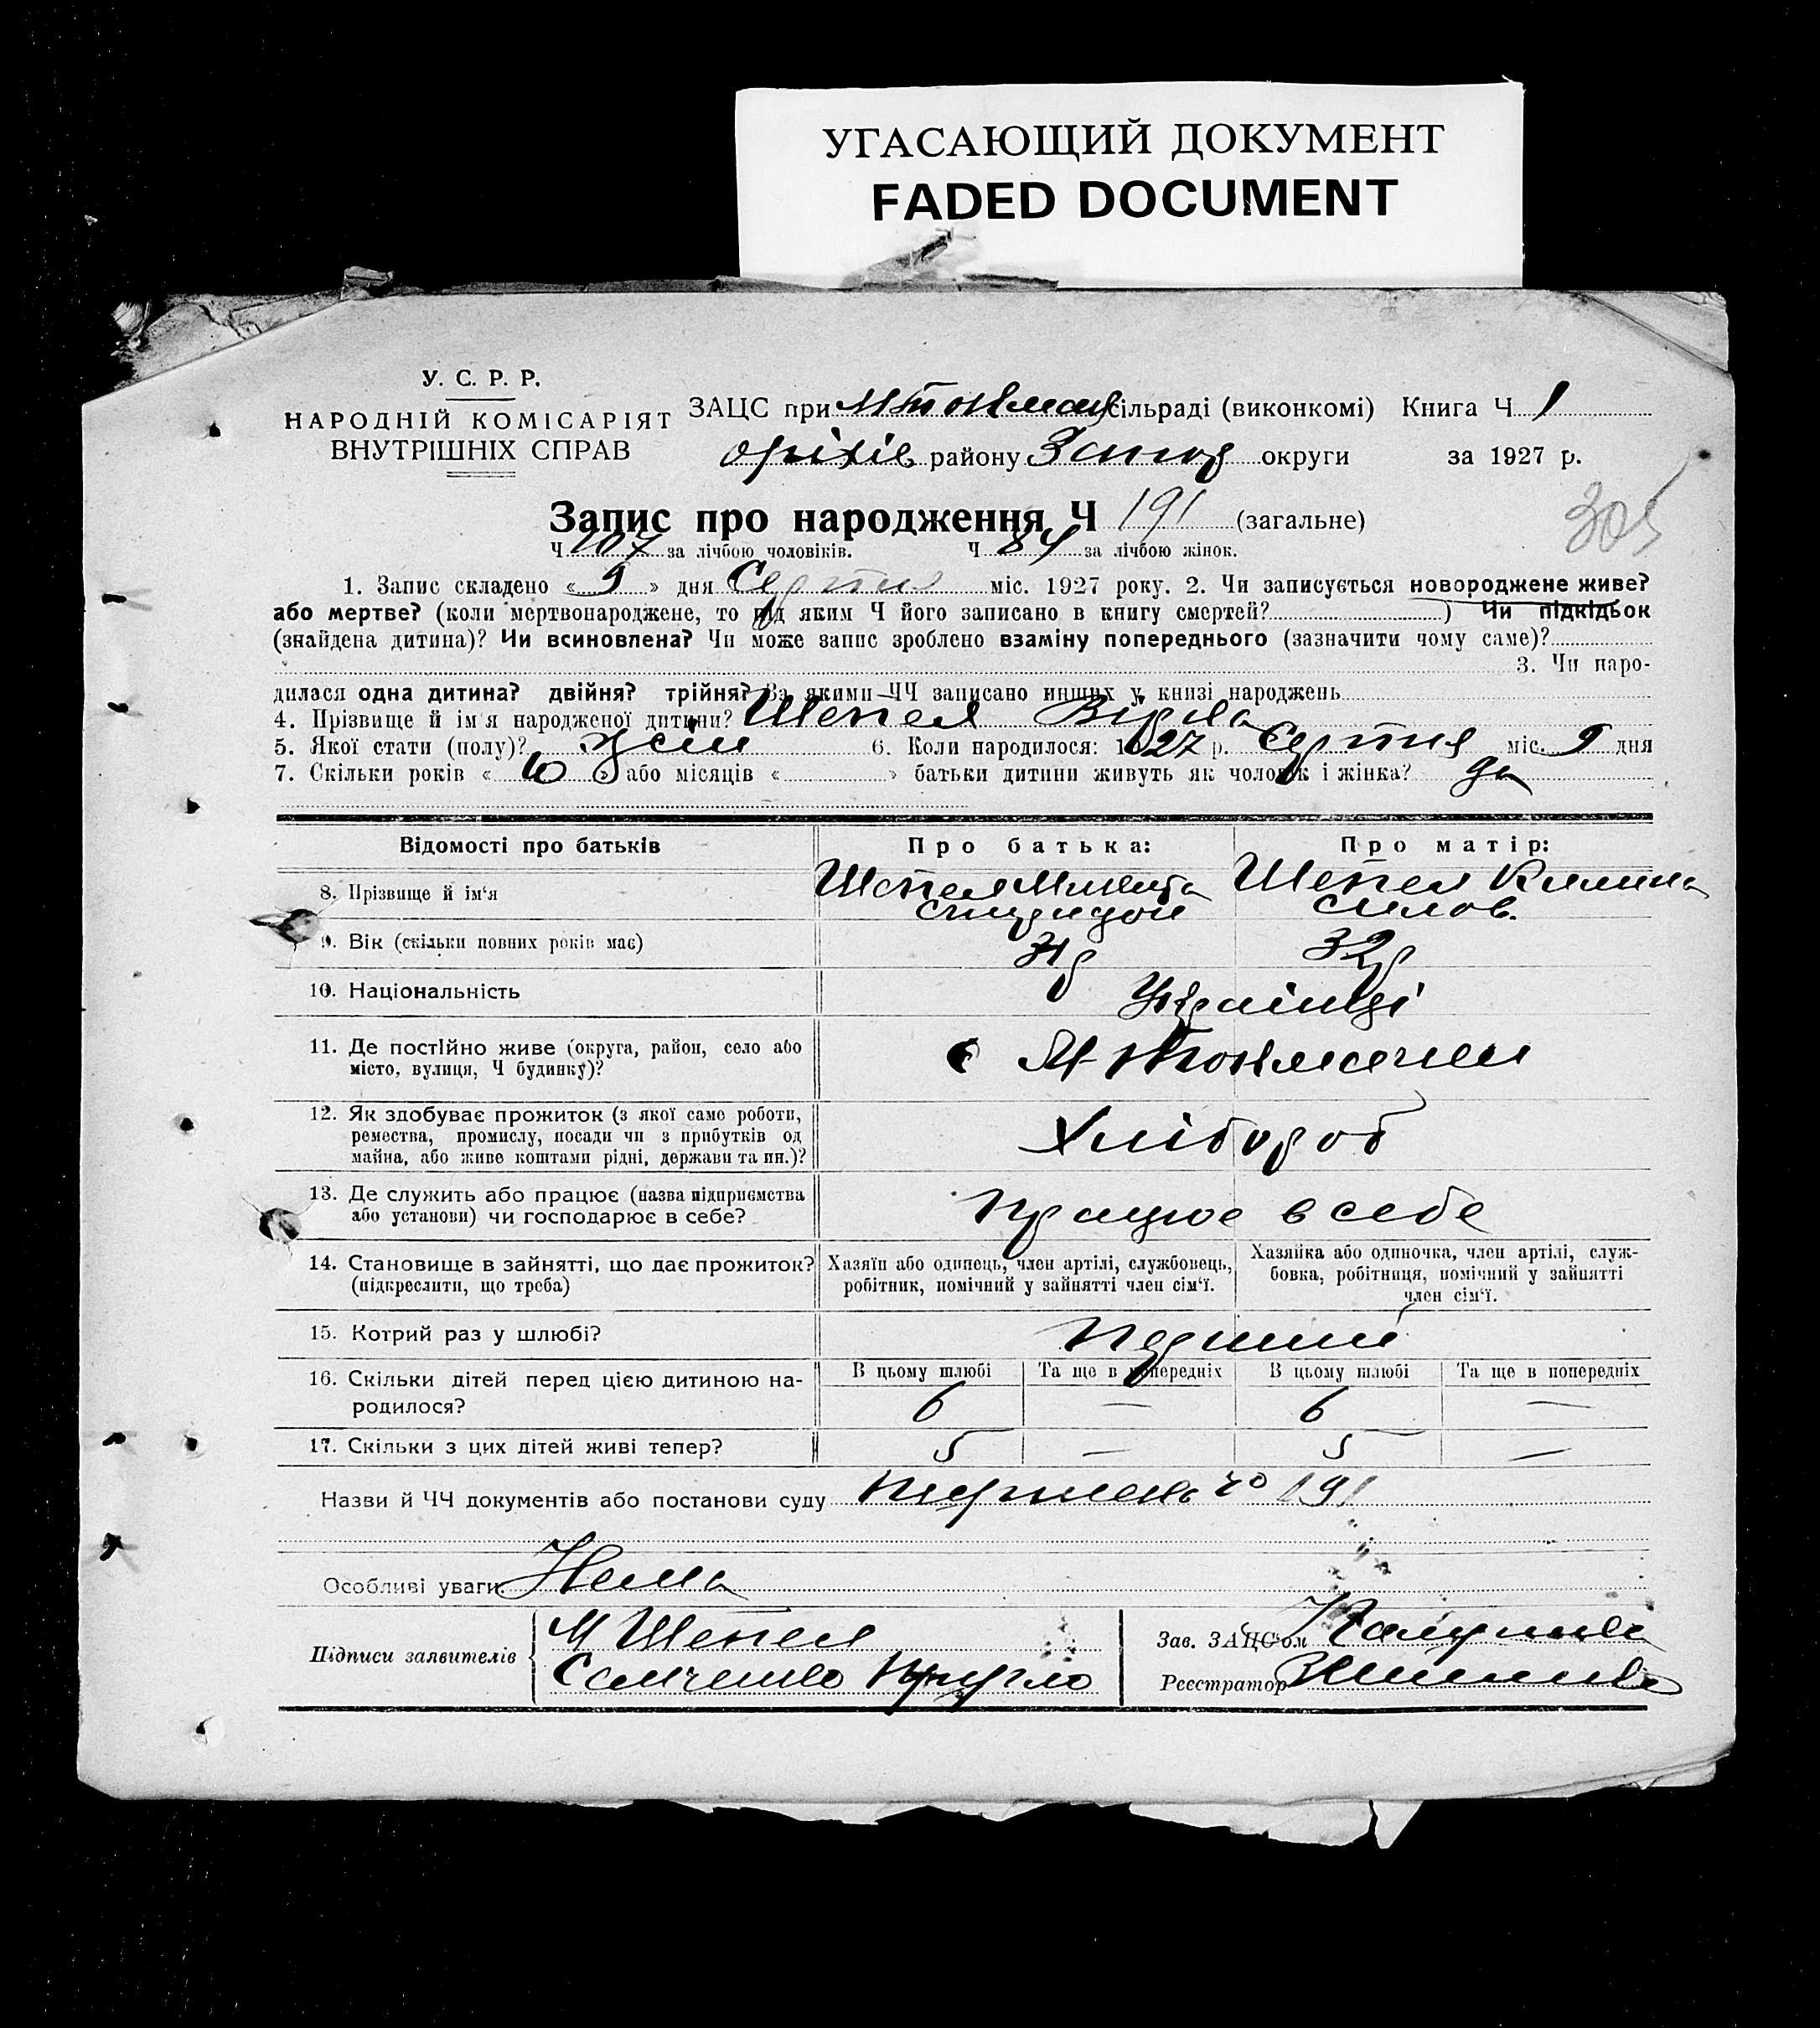 УГАСАЮЩИЙ ДОКУМЕНТ
FADED DOCUMENT
У. С. Р. Р.
НАРОДНІЙ КОМІСАРІЯТ
ВНУТРІШНІХ СПРАВ
ЗАЦС при М Токмац сільраді (виконкомі) Книга Ч 1
Оріхів району Запор округи за 1927 р.
305
Запис про народження Ч 191 (загальне)
Ч 107 за лічбою чоловіків. Ч 84 за лічбою жінок.
1. Запис складено « 9 » дня Серпня міс. 1927 року. 2. Чи записується новороджене живе?
або мертве? (коли мертвонароджене, то під яким Ч його записано в книгу смертей? ) Чи підкідьок
(знайдена дитина)? Чи всиновлена? Чи може запис зроблено взаміну попереднього (зазначити чому саме)?
3. Чи наро-
дилася одна дитина? двійня? трійня? За якими ЧЧ записано инших у книзі народжень
4. Прізвище й ім'я народженої дитини? Шепел
5. Якої стати (полу)? 6. Коли народилося: 1927 р. Серпня міс. 9 дня
7. Скільки років « 10 » або місяців « » батьки дитини живуть як чоловік і жінка? да
Відомості про батьків Про батька: Про матір:
8. Прізвище й ім'я Шепел Микита Шепел
Спиридон
9. Вік (скільки повних років має) 32р
10. Національність Українці
11. Де постІйно живе (округа, район, село або
місто, вулиця, Ч будинку)? с М-Токмачки
12. Як здобуває прожиток (з якої само роботи,
ремества, промислу, посади чи з прибутків од
майна, або живе коштами рідні, держави та ин.)? Хлібороб
13. Де служить або працює (назва підприємства
або установи) чи господарює в себе? Працює в себе
14. Становище в зайнятті, що дає прожиток? (підкреслити, що треба)
Хазяїн або одинець, член артілі, службовець,
робітник, помічний у зайнятті член сім'ї.
Хазяйка або одиночка, член артілі, служ-
бовка, робітниця, помічний у зайнятті
член сім'ї.
15. Котрий раз у шлюбі? Перший
16. Скільки дітей перед цією дитиною на-
родилося? В цьому шлюбі Та ще в попередніх В цьому шлюбі Та ще в попередніх
6 — 6 —
17. Скільки з цих дітей живі тепер? 5 — 5 —
Назви й ЧЧ документів або постанови суду 191
Особливі уваги. Нема
Підписи заявителів М Шепел
Зав. ЗАЦС'ом
Реєстратор